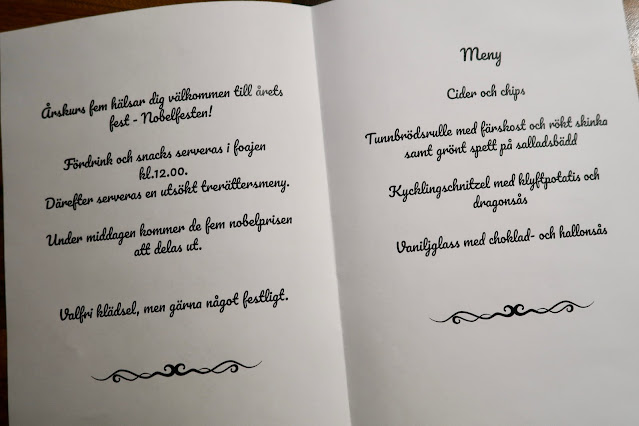 Årskurs fem hälsar dig välkommen till årets
fest - Nobelfesten!
Fördrink och snacks serveras i foajen
kl.12.00.
Därefter serveras en utsökt trerättersmeny.
Under middagen kommer de fem nobelprisen
att delas ut.
Valfri klädsel, men gärna något festligt.
Meny
Cider och chips
Tunnbrödsrulle med färskost och rökt skinka
samt grönt spett på salladsbädd
Kycklingschnitzel med klyftpotatis och
dragonsås
Vaniljglass med choklad- och hallonsås